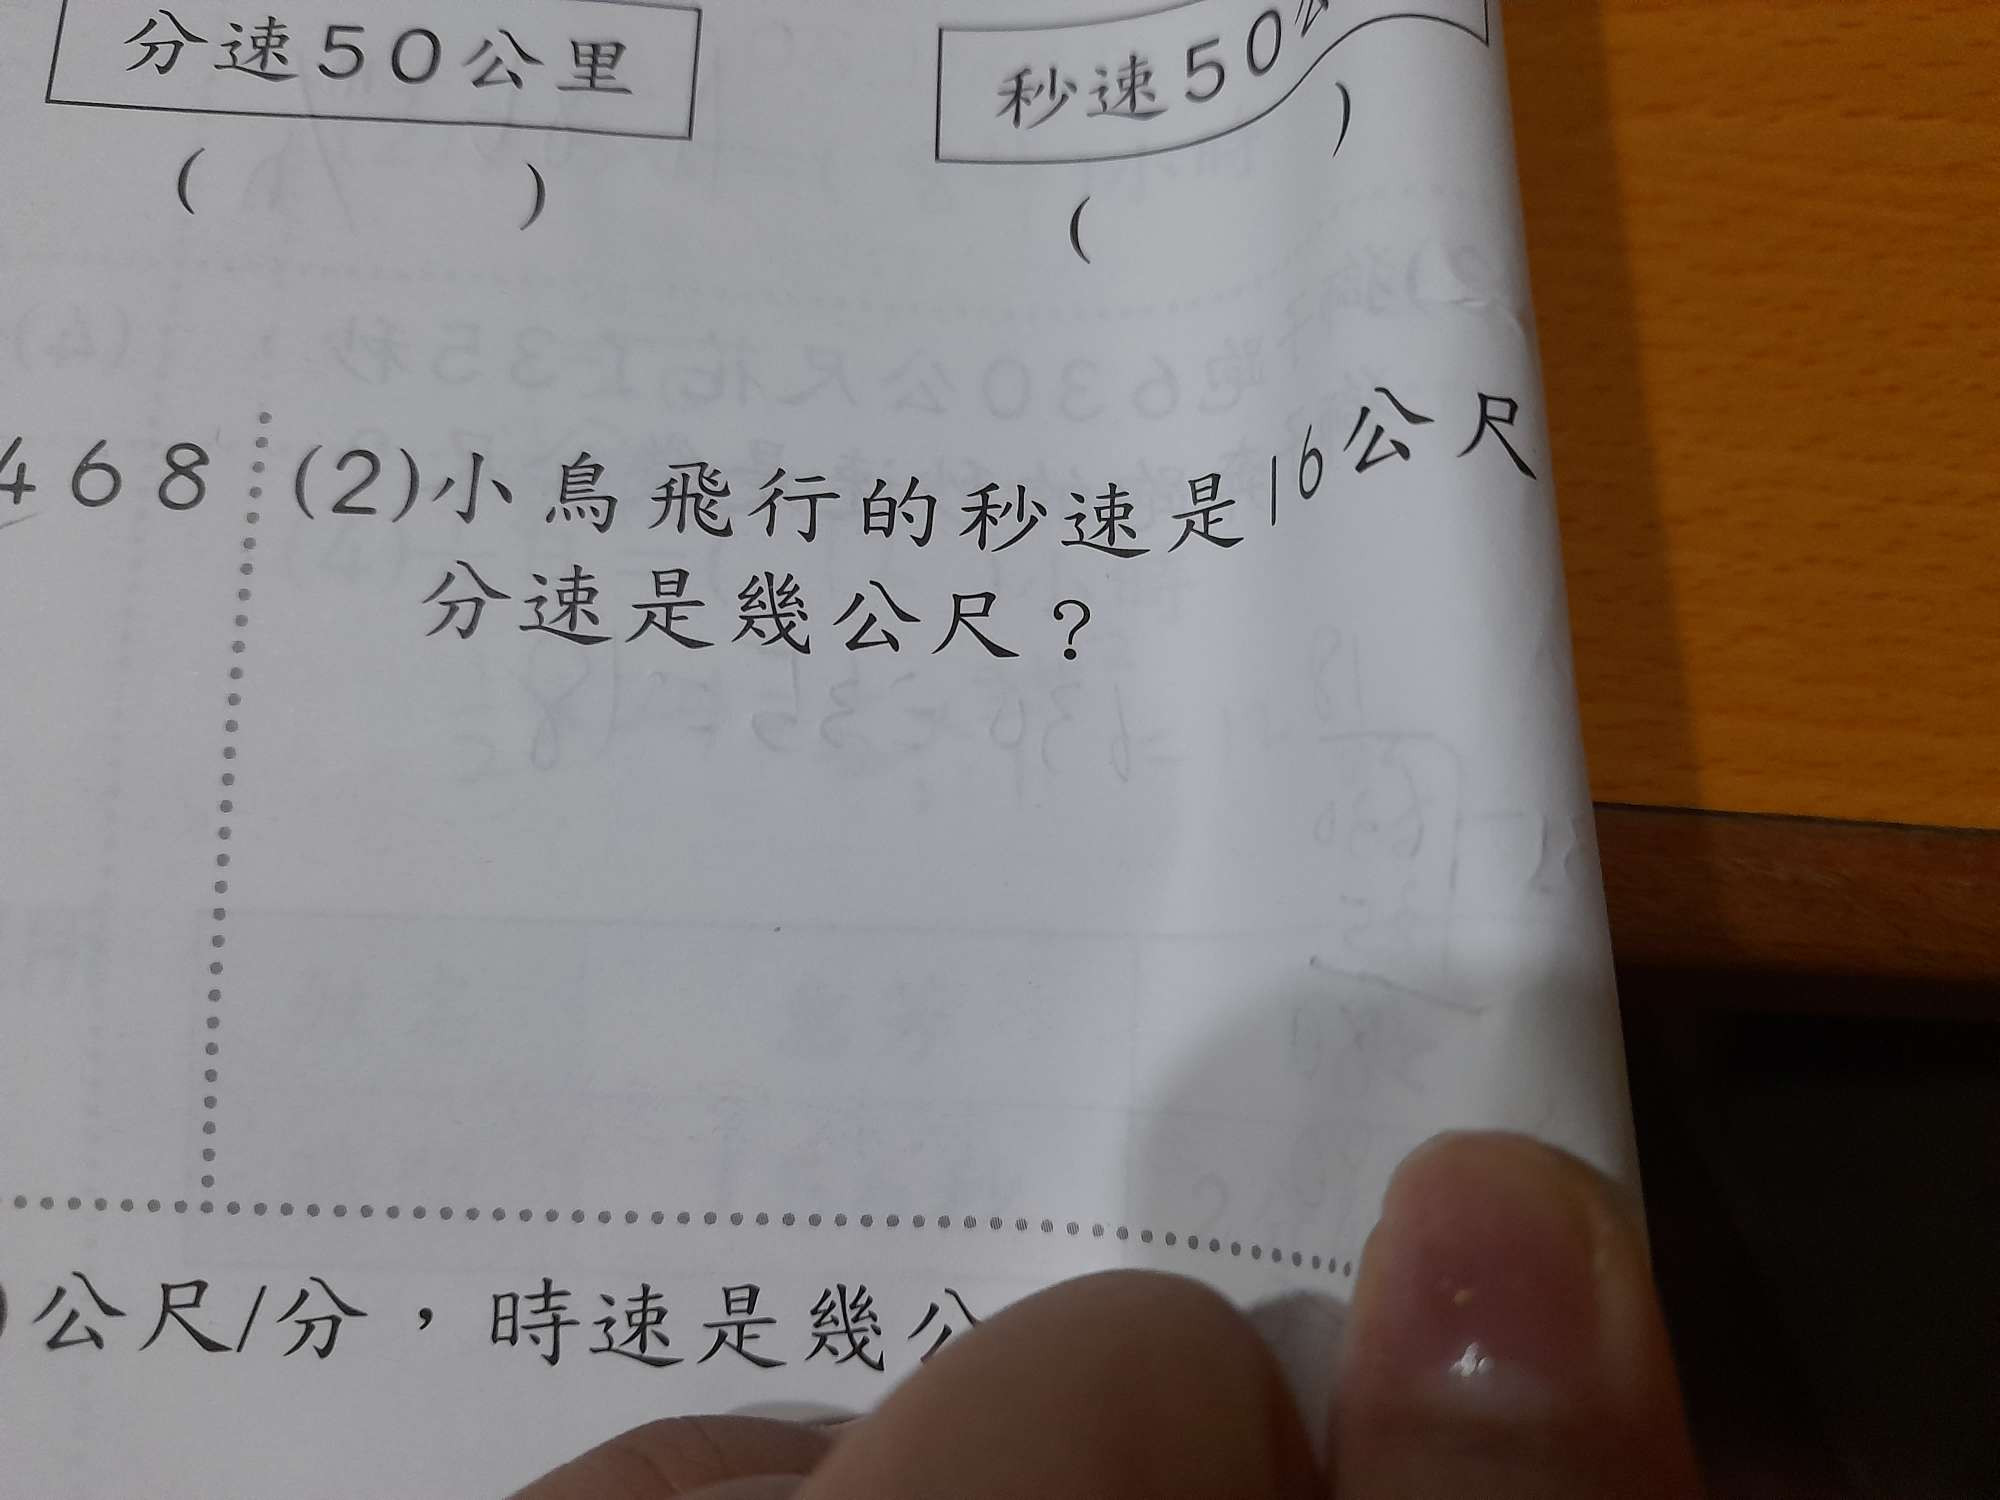 分速50公里
秒速50公
(　　　)
(　　　)
468
(2)小鳥飛行的秒速是16公尺
分速是幾公尺？
公尺/分，時速是幾公